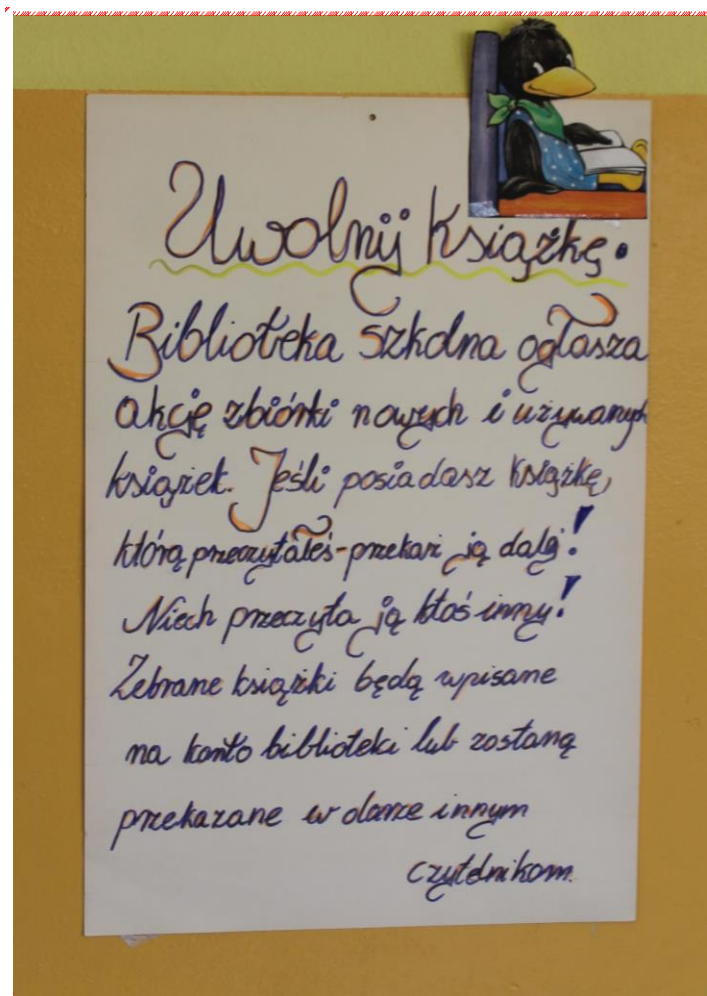 Uwolnij książkę.
Biblioteka szkolna ogłasza
akcję zbiórki nowych i używanych
książek. Jeśli posiadasz książkę,
którą przeczytałeś - przekaż ją dalej!
Niech przeczyta ją ktoś inny!
Zebrane książki będą wpisane
na konto biblioteki lub zostaną
przekazane w darze innym
czytelnikom.